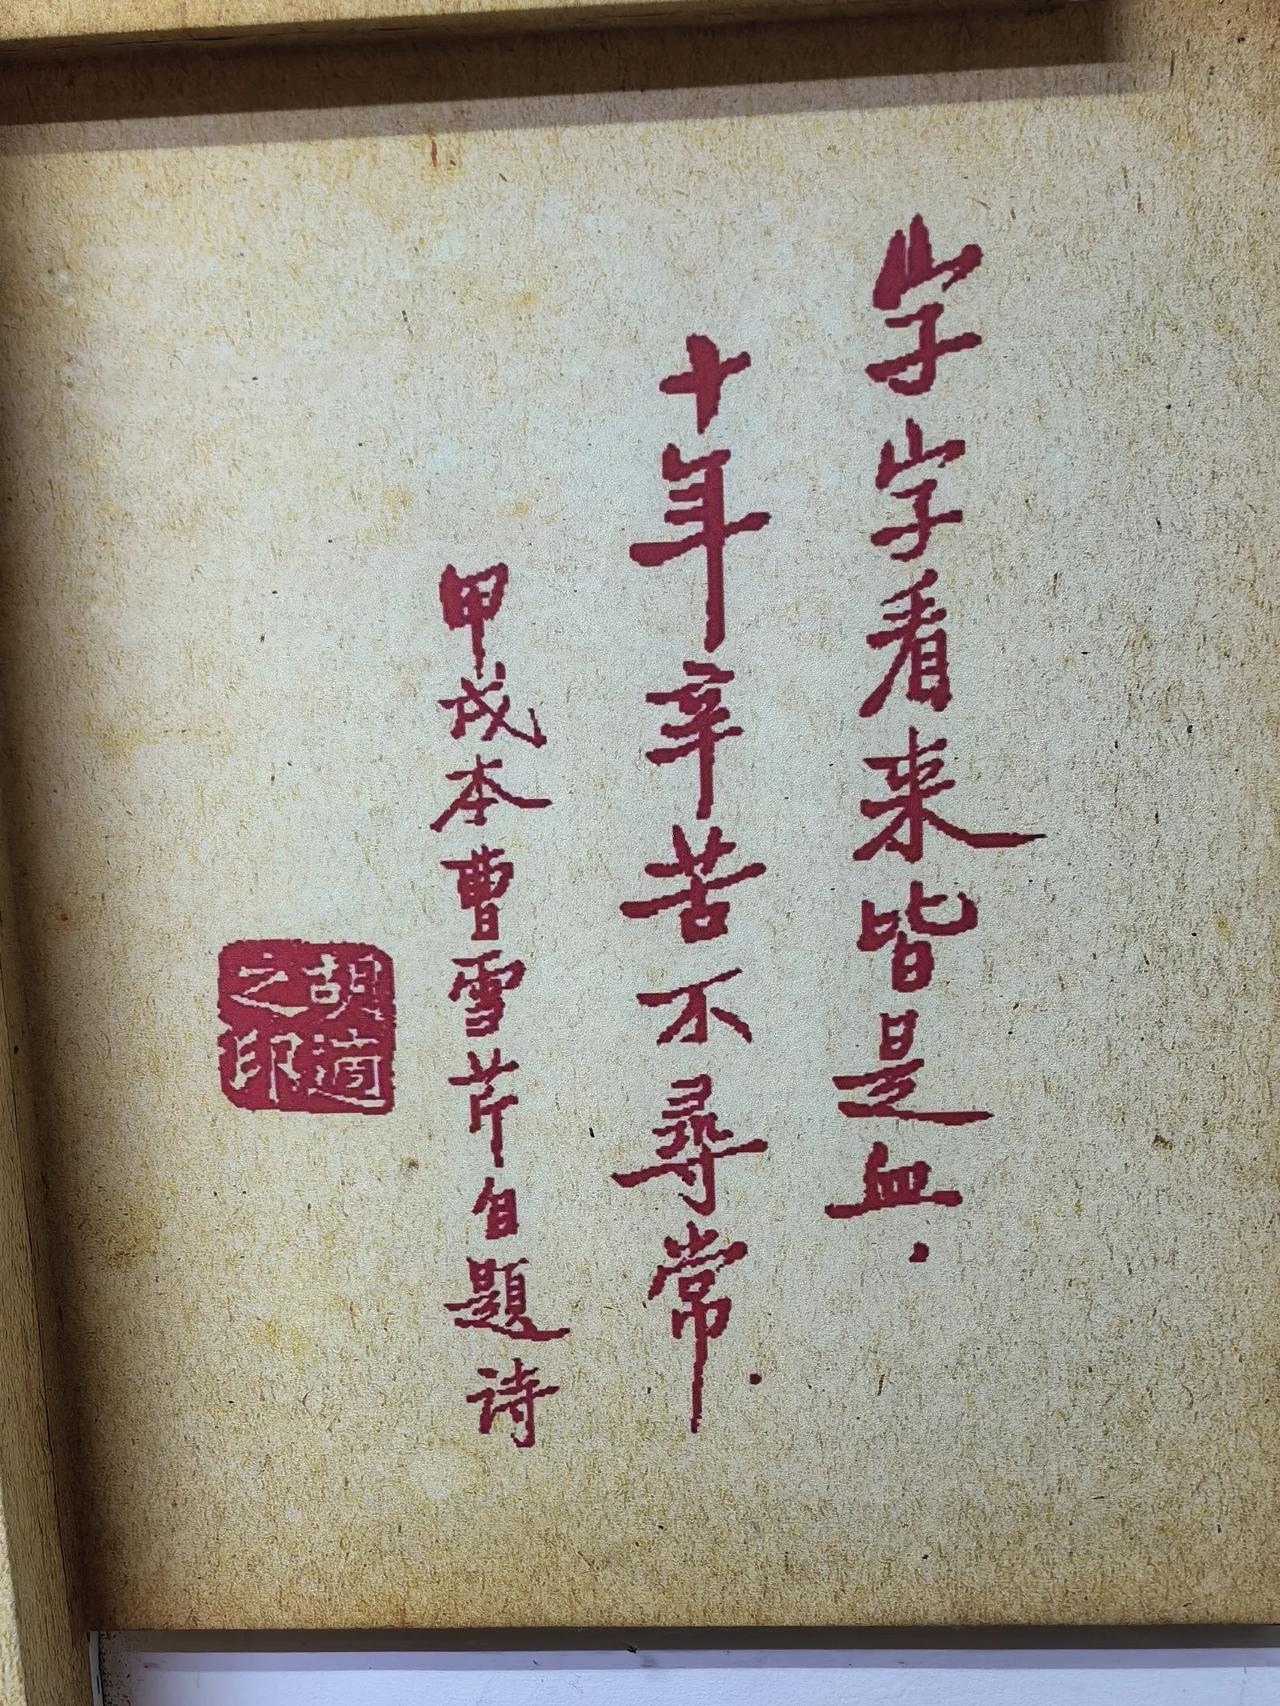 字字看来皆是血.
十年辛苦不尋常.
甲戌本曹雪芹自題詩
胡適之印